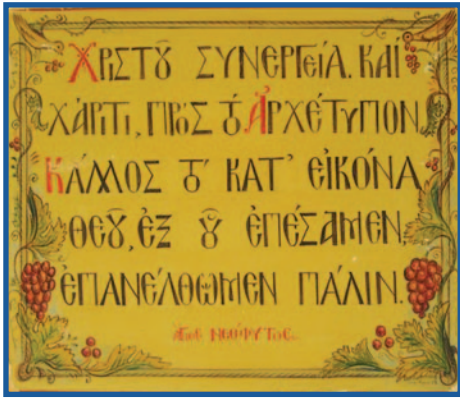 ΧΡΙΣΤȢ͂ ΣΥΝΕΡΓΕΊΑ. ΚΑΙ
ΧΆΡΙΤΙ, ΠΡῸΣ ΤΌ ἈΡΧΈΤΥΠΟΝ
ΚΆΛΛΟΣ ΤΌ ΚΑΤ' ΕἸΚΌΝΑ
ΘΕȢ͂, ἘΞ Ȣ͂ ἘΠΈΣΑΜΕΝ,
ἘΠΑΝΈΛΘΩΜΕΝ ΠΆΛΙΝ.
ἍΓΙΟΣ ΝΕΌΦΥΤΟΣ.